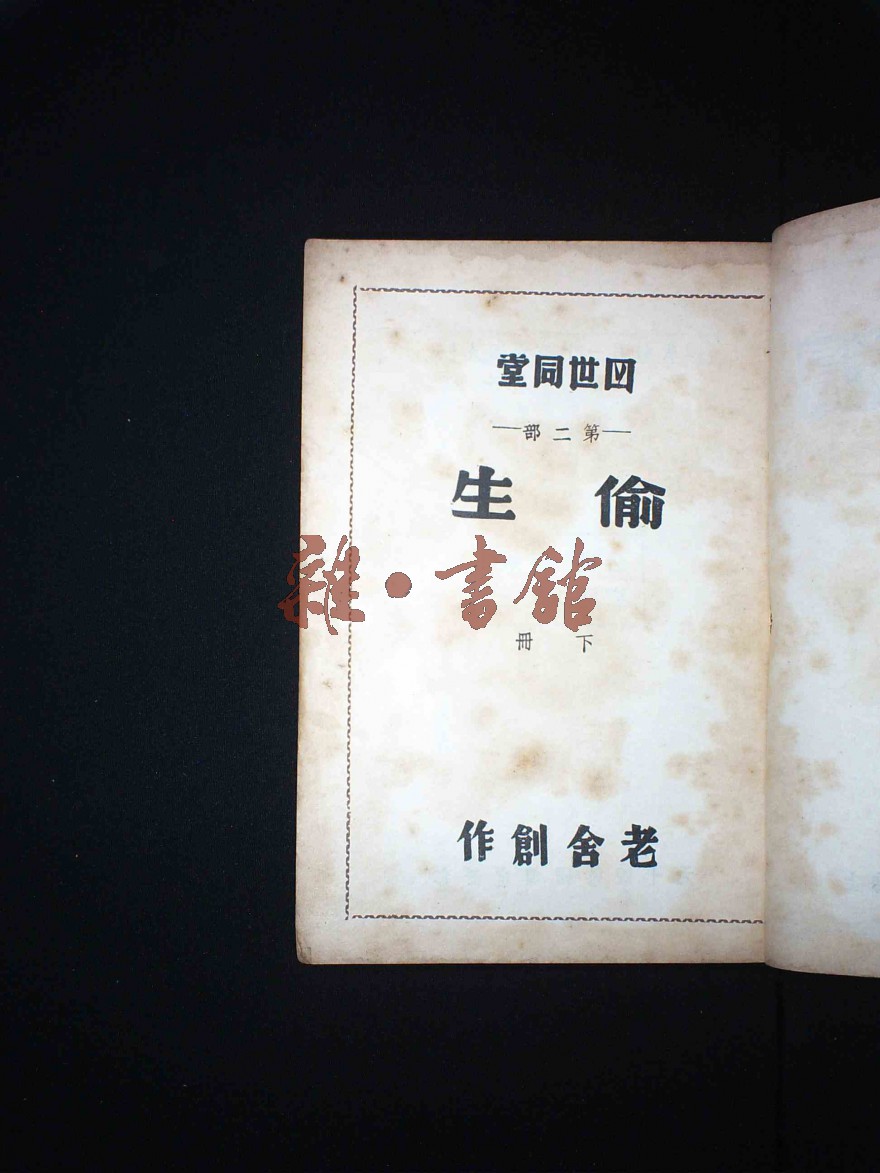 四世同堂
—第二部—
偷生
雜·書館
下冊
老舍創作